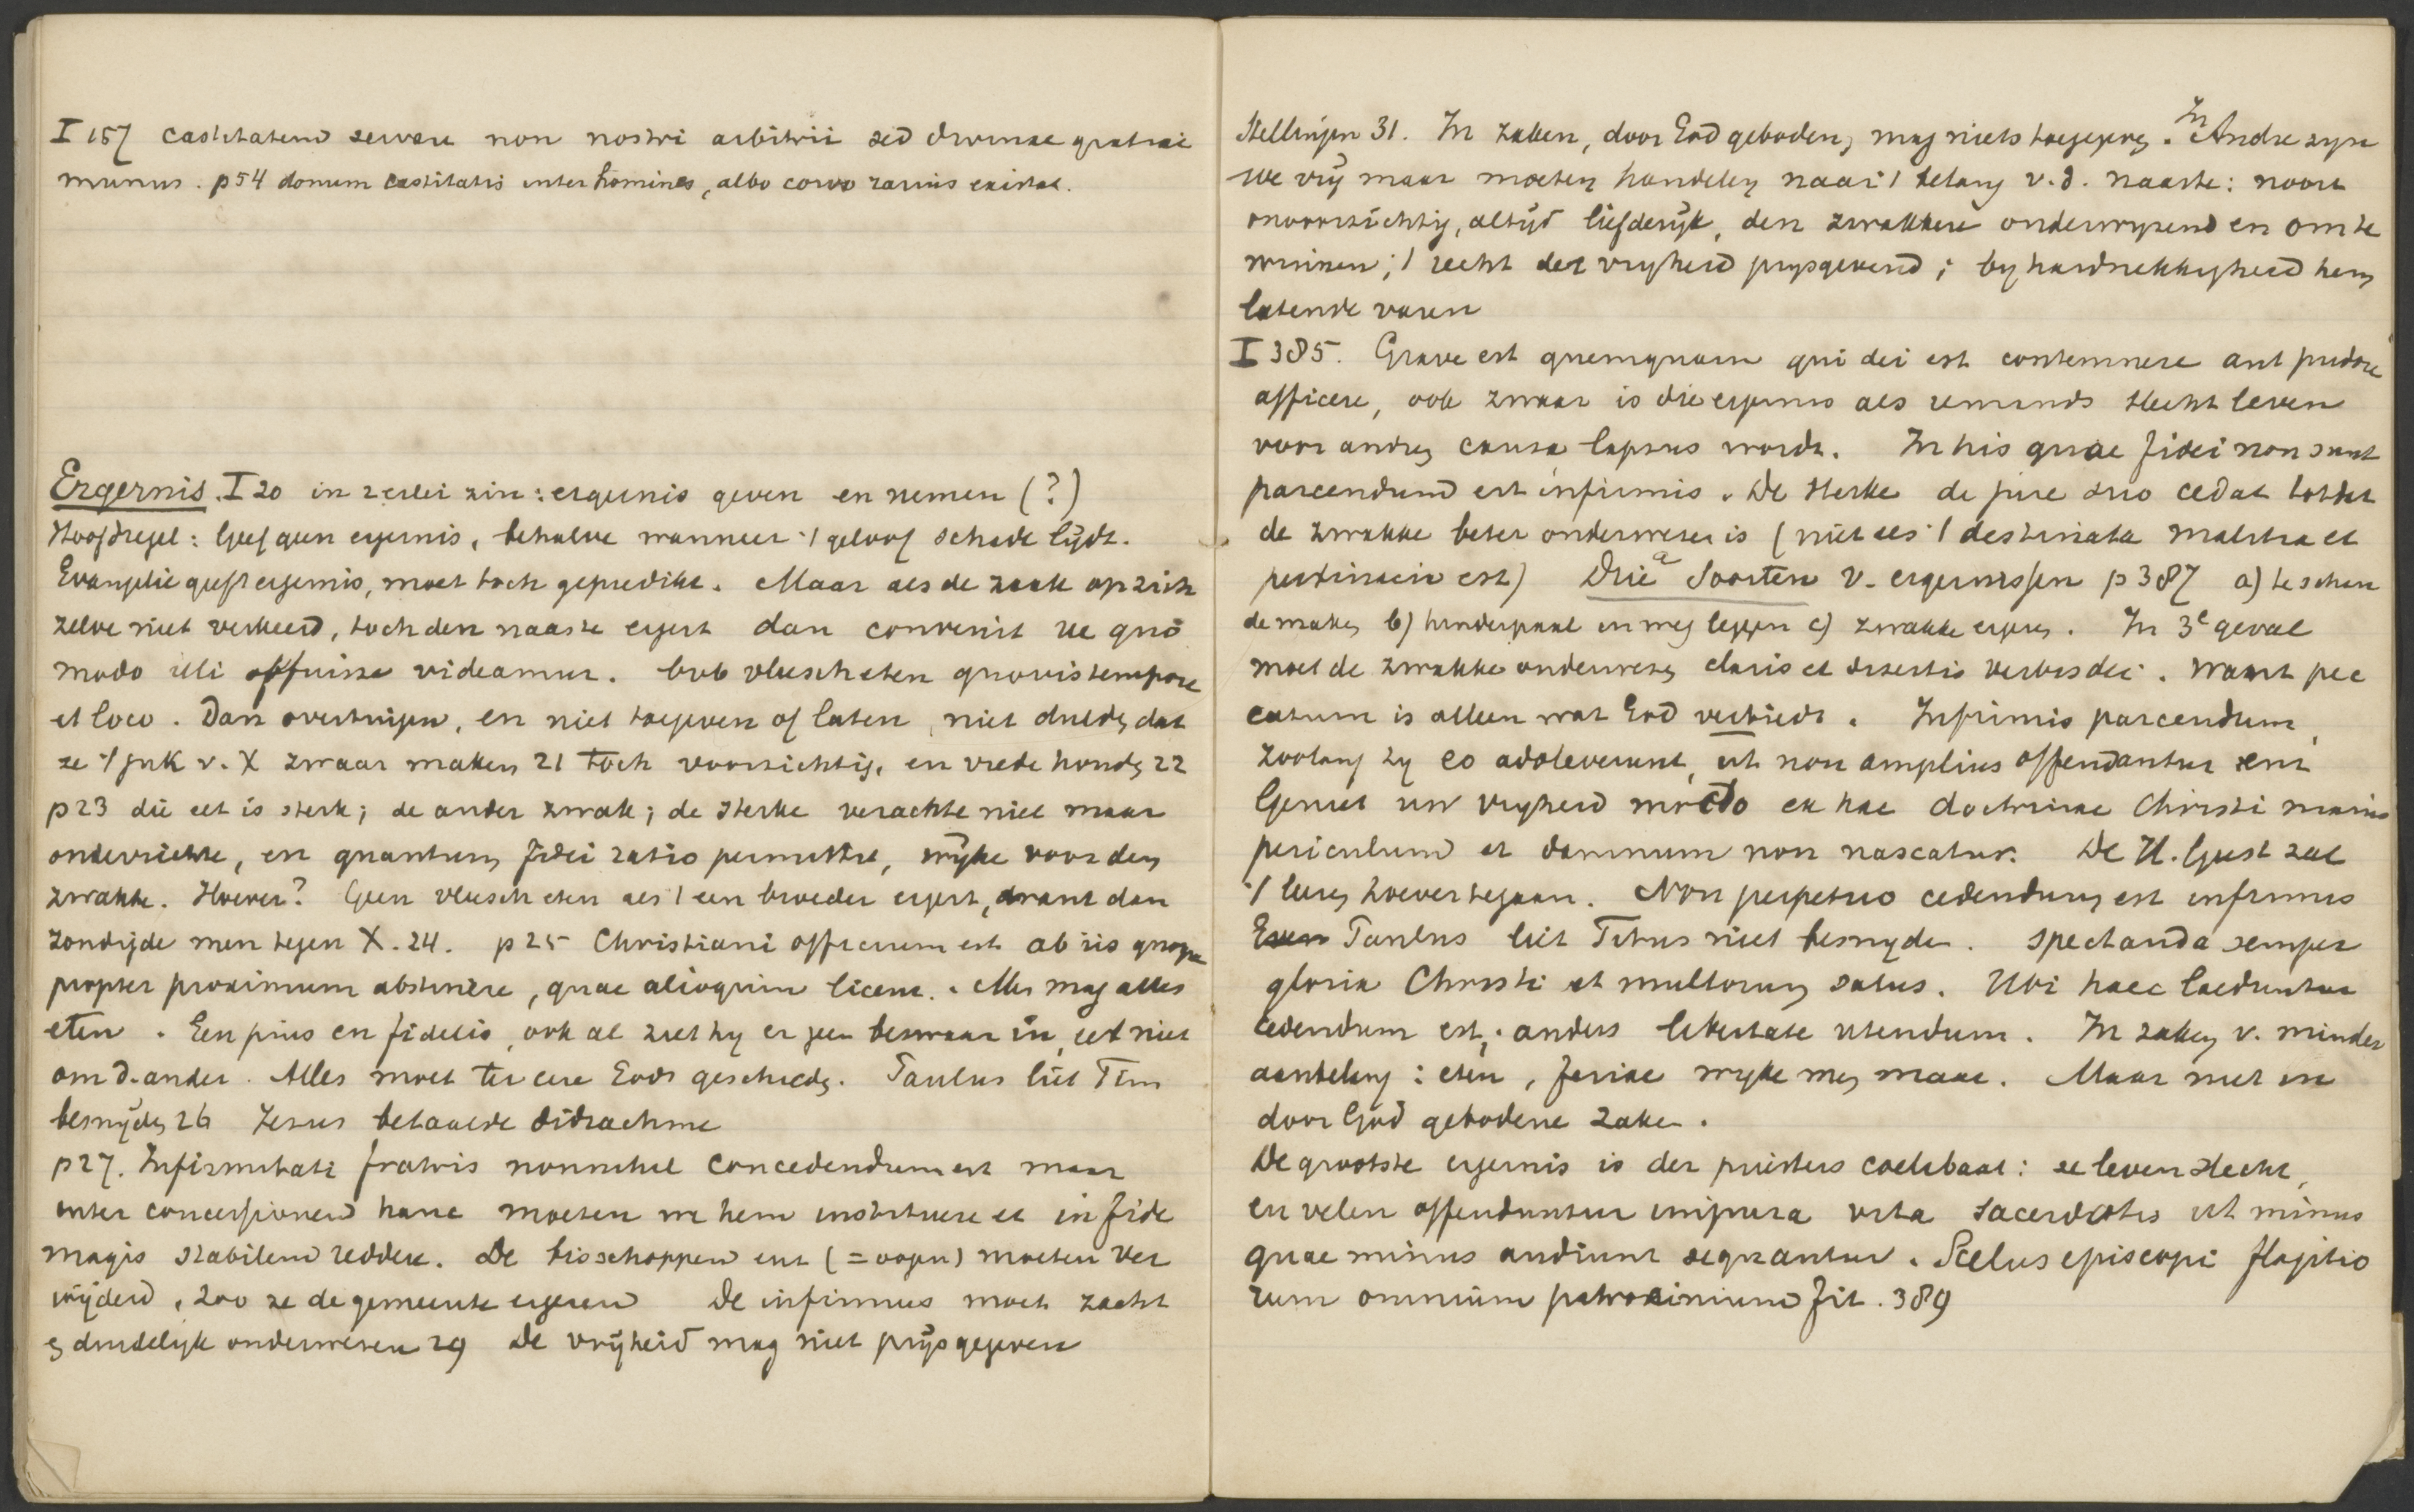 I 157 castitatem servare non nostri arbitrii sed divinae gratiae
munus. p 54 donum castitatis inter homines, albo corvo rarius existat.
Ergernis. I 20 in 2erlei zin: ergernis geven en nemen (?)
Hoofdregel: Geef geen ergernis, behalve wanneer 't geloof schade lijdt.
Evangelie geeft ergernis, moet toch gepredikt. Maar als de zaak op zich
zelve niet verkeerd, toch den naaste ergert dan convenit ne quo
modo illi offuisse videamur. bvb vleesch eten quovis tempore
et loco. Dan overtuigen, en niet toegeven of laten, niet dulden dat
ze 't juk v. X zwaar maken 21 Toch voorzichtig, en vrede houden 22
p 23 die eet is sterk; de ander zwak; de sterke verachte niet maar
onderrichte, en quantum fidei ratio permittit, wijke voor den
zwakke. Hoever? Geen vleesch eten als 't een broeder ergert, want dan
zondigde men tegen X. 24. p 25 Christiani officium est ab iis quoque
propter proximum abstinere, quae alioquin licent. Men mag alles
eten. Een pius en fidelis, ook al ziet hy er geen bezwaar in, eet niet
om d. ander. Alles moet ter eere Gods geschieden. Paulus liet Tim
besnijden 26 Jezus betaalde didrachme
p 27. Infirmitati fratris nonnihil concedendum est maar
inter concessionem hanc moeten we hem instituere et in fide
magis stabilem reddere. De bisschoppen ent (= oogen) moeten ver
wijderd, zoo ze de gemeente ergeren De infirmus moet zacht
en duidelijk onderwezen 29 De vrijheid mag niet prijsgegeven
Stellingen 31. In zaken, door God geboden, mag niets toegegeven. In Andre zijn
we vrij maar moeten handelen naar 't belang v. d. naaste: nooit
onvoorzichtig, altijd liefderijk, den zwakkere onderwyzend en om te
winnen; 't recht der vryheid prysgevend; by hardnekkigheid hem
latende varen
I 385. Grave est quemquam qui dei est contemnere aut pudore
afficere, ook zwaar is die ergernis als iemands slecht leven
voor andren causa lapsus wordt. In his quae fidei non sunt
parcendum est infirmis. De sterke de jure suo cedat totdat
de zwakke beter onderwezen is (niet als 't destinata malitia et
pertinacia est) Drie Soorten v. ergernissen p 387 a) te schan
de maken b) hinderpaal in weg leggen c) zwakke ergeren. In 3e geval
moet de zwakke onderwezen claris et disertis verbis dei. Want pec
catum is alleen wat God verbiedt. Infirmis parcendum,
zoolang zy eo adoleverunt, ut non amplius offendantur
Geniet uw vryheid modo ex hac doctrinae Christi maius
periculum et damnum non nascatur. De H. Geest zal
't leeren hoever te gaan. Non perpetuo cedendum est infirmis
Paulus liet Titus niet besnyden. spectanda semper
gloria Christi et multorum salus. Ubi haec laeduntur
cedendum est; anders libertate utendum. In zaken v. minder
aanbelang: eten, feriae wyke men maar. Maar niet in
door God geboden zaken.
De grootste ergernis is der priesters coelibaat: ze leven slecht,
en velen offenduntur impura vita sacerdotis ut minus
quae minus audiunt sequantur. Scelus episcopi flagitio
rum omnium patrocinium fit. 389